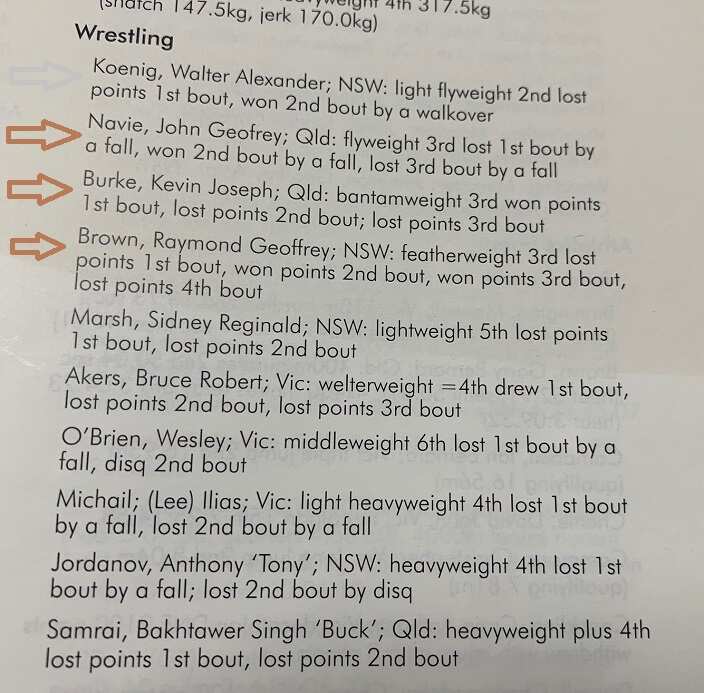 heavyweight 4th 317.5kg
(snatch 147.5kg, jerk 170.0kg)
Wrestling
Koenig, Walter Alexander; NSW: light flyweight 2nd lost
points 1st bout, won 2nd bout by a walkover
Navie, John Geofrey; Qld: flyweight 3rd lost 1st bout by
a fall, won 2nd bout by a fall, lost 3rd bout by a fall
Burke, Kevin Joseph; Qld: bantamweight 3rd won points
1st bout, lost points 2nd bout; lost points 3rd bout
Brown, Raymond Geoffrey; NSW: featherweight 3rd lost
points 1st bout, won points 2nd bout, won points 3rd bout,
lost points 4th bout
Marsh, Sidney Reginald; NSW: lightweight 5th lost points
1st bout, lost points 2nd bout
Akers, Bruce Robert; Vic: welterweight =4th drew 1st bout,
lost points 2nd bout, lost points 3rd bout
O'Brien, Wesley; Vic: middleweight 6th lost 1st bout by a
fall, disq 2nd bout
Michail; (Lee) Ilias; Vic: light heavyweight 4th lost 1st bout
by a fall, lost 2nd bout by a fall
Jordanov, Anthony 'Tony'; NSW: heavyweight 4th lost 1st
bout by a fall; lost 2nd bout by disq
Samrai, Bakhtawer Singh 'Buck'; Qld: heavyweight plus 4th
lost points 1st bout, lost points 2nd bout